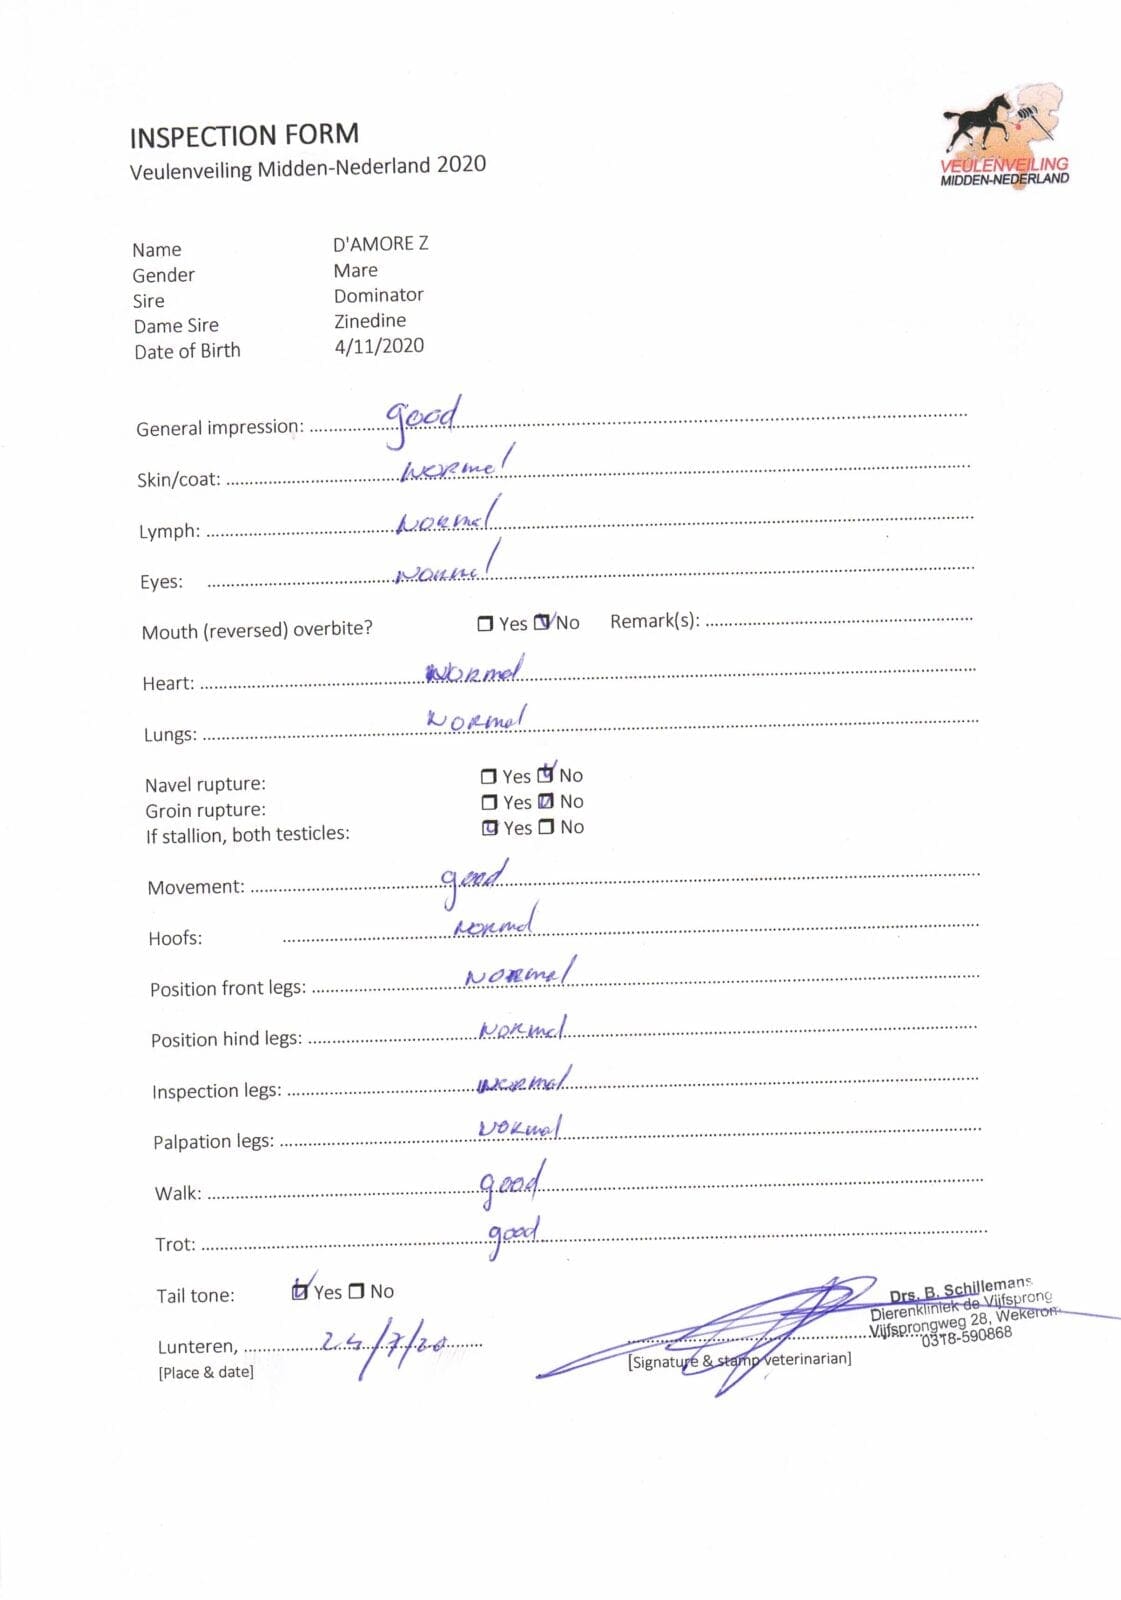 INSPECTION FORM
Veulenveiling Midden-Nederland 2020
VEULENVEILING
MIDDEN-NEDERLAND
Name D'AMORE Z
Gender Mare
Sire Dominator
Dame Sire Zinedine
Date of Birth 4/11/2020
General impression: good
Skin/coat: Normal
Lymph: Normal
Eyes: Normal
Mouth (reversed) overbite? ☐ Yes ☑ No Remark(s):
Heart: Normal
Lungs: Normal
Navel rupture: ☐ Yes ☑ No
Groin rupture: ☐ Yes ☑ No
If stallion, both testicles: ☑ Yes ☐ No
Movement: good
Hoofs: Normal
Position front legs: Normal
Position hind legs: Normal
Inspection legs: Normal
Palpation legs: Normal
Walk: good
Trot: good
Tail tone: ☑ Yes ☐ No
Drs. B. Schillemans
Dierenkliniek de Vijfsprong
Vijfsprongweg 28, Wekerom
0318-590868
Lunteren, 24/7/20
[Place & date] [Signature & stamp veterinarian]